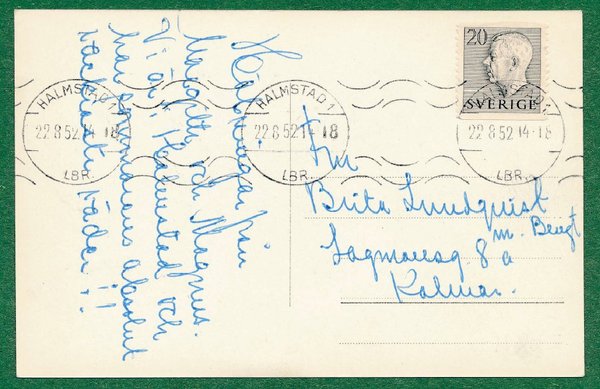 Hälsningar från
och Magnus.
Vi är i Halmstad och
har sommarens absolut
vackraste väder!!
20
SVERIGE
HALMSTAD 1
22 8 52 14-18
LBR.
HALMSTAD 1
22 8 52 14-18
LBR.
HALMSTAD 1
22 8 52 14-18
LBR.
Fru
Brita Lundquist
m. Bengt
8 a
Kalmar.